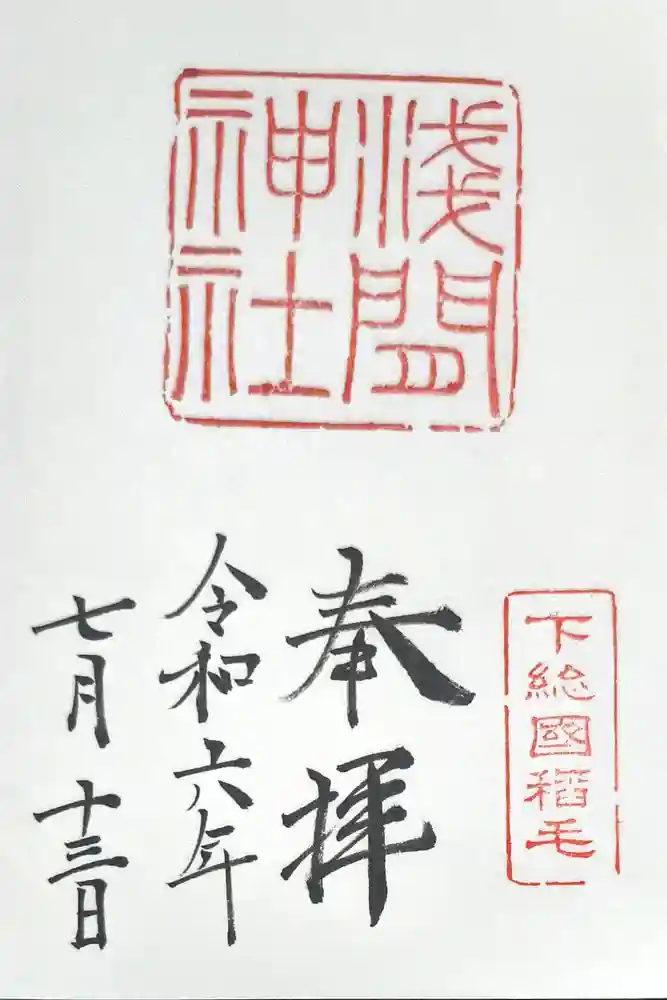 淺間
神社
下総國稲毛
奉拝
令和六年
七月十三日